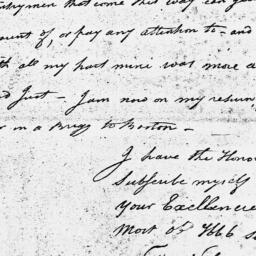 that come this way can
of, or pay any attention to - and
all my part mine was more a
Just - I am now on my return
in a Brigg to Boston -
I have the Honor
Subscribe myself
your Excellencie
most ob